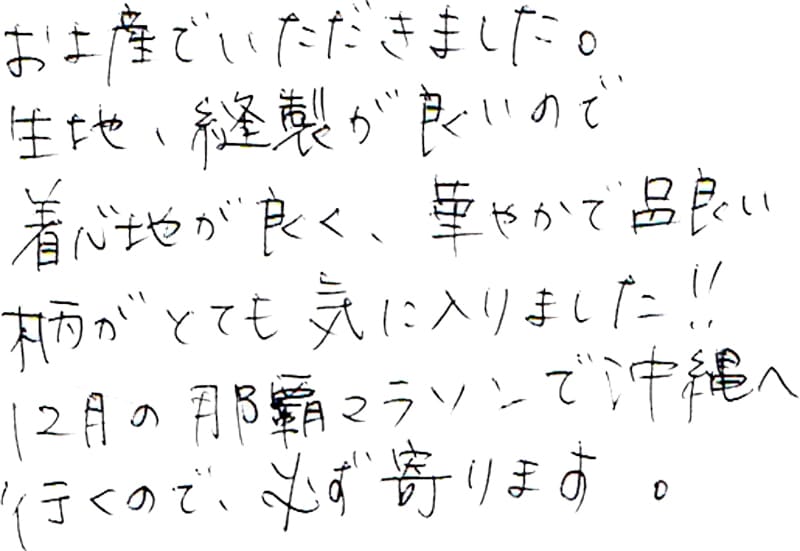 お土産でいただきました。
生地、縫製が良いので
着心地が良く、華やかで品良い
柄がとても気に入りました!!
12月の那覇マラソンで沖縄へ
行くので、必ず寄ります。